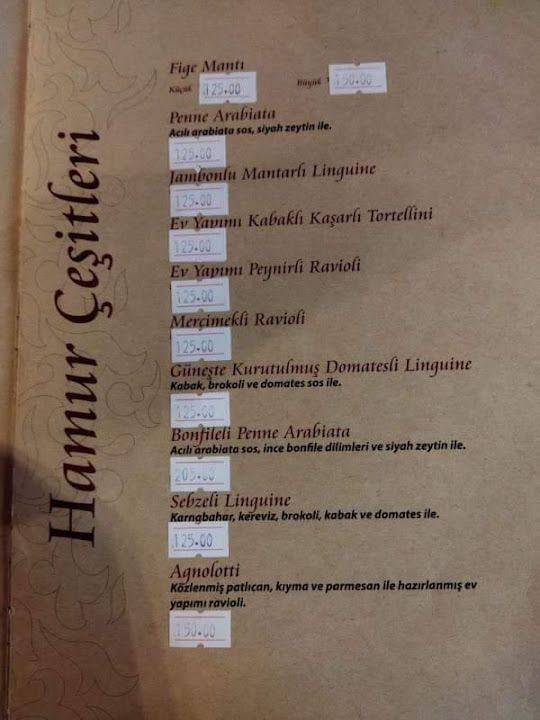 Hamur Çeşitleri
Fige Mantı
Küçük 125.00 Büyük 150.00
Penne Arabiata
Acılı arabiata sos, siyah zeytin ile.
125.00
Jambonlu Mantarlı Linguine
125.00
Ev Yapımı Kabaklı Kaşarlı Tortellini
125.00
Ev Yapımı Peynirli Ravioli
125.00
Merçimekli Ravioli
125.00
Güneşte Kurutulmuş Domatesli Linguine
Kabak, brokoli ve domates sos ile.
125.00
Bonfileli Penne Arabiata
Acılı arabiata sos, ince bonfile dilimleri ve siyah zeytin ile.
205.00
Sebzeli Linguine
Karngbahar, kereviz, brokoli, kabak ve domates ile.
125.00
Agnolotti
Közlenmiş patlıcan, kıyma ve parmesan ile hazırlanmış ev
yapımı ravioli.
150.00